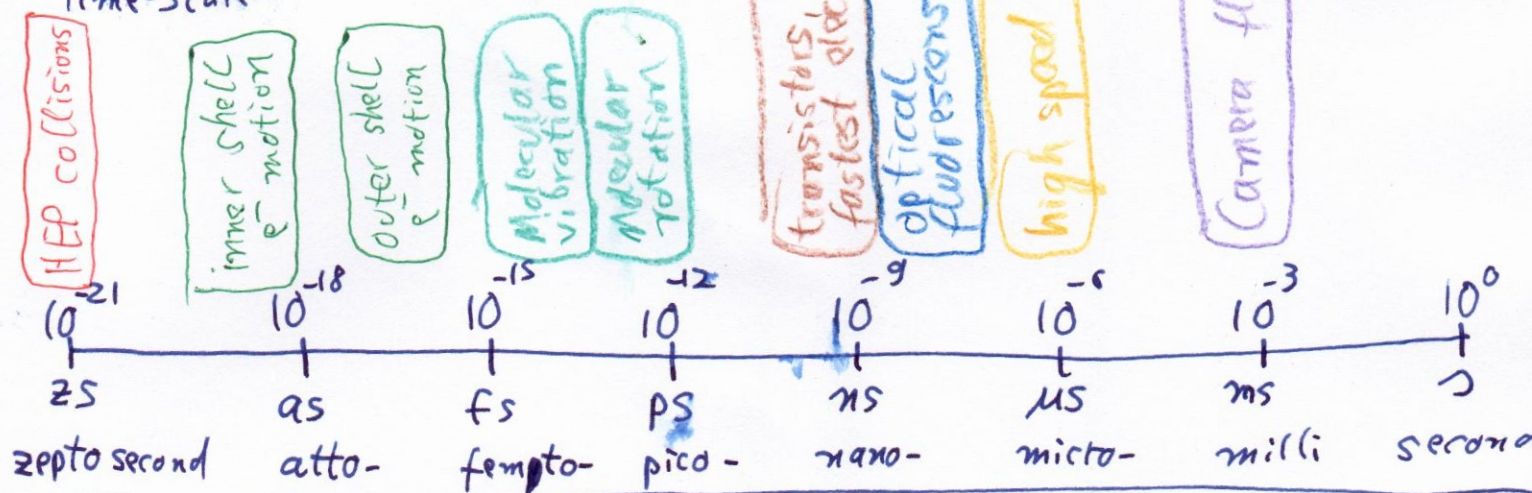 time-scale
HEP collisions
inner shell
e⁻ motion
outer shell
e⁻ motion
Molecular
vibration
Molecular
rotation
transistors,
fastest
optical
fluorescens
high speed
Camera
10⁻²¹ 10⁻¹⁸ 10⁻¹⁵ 10⁻¹² 10⁻⁹ 10⁻⁶ 10⁻³ 10⁰
zs as fs ps ns μs ms s
zeptosecond atto- fempto- pico- nano- micro- milli second